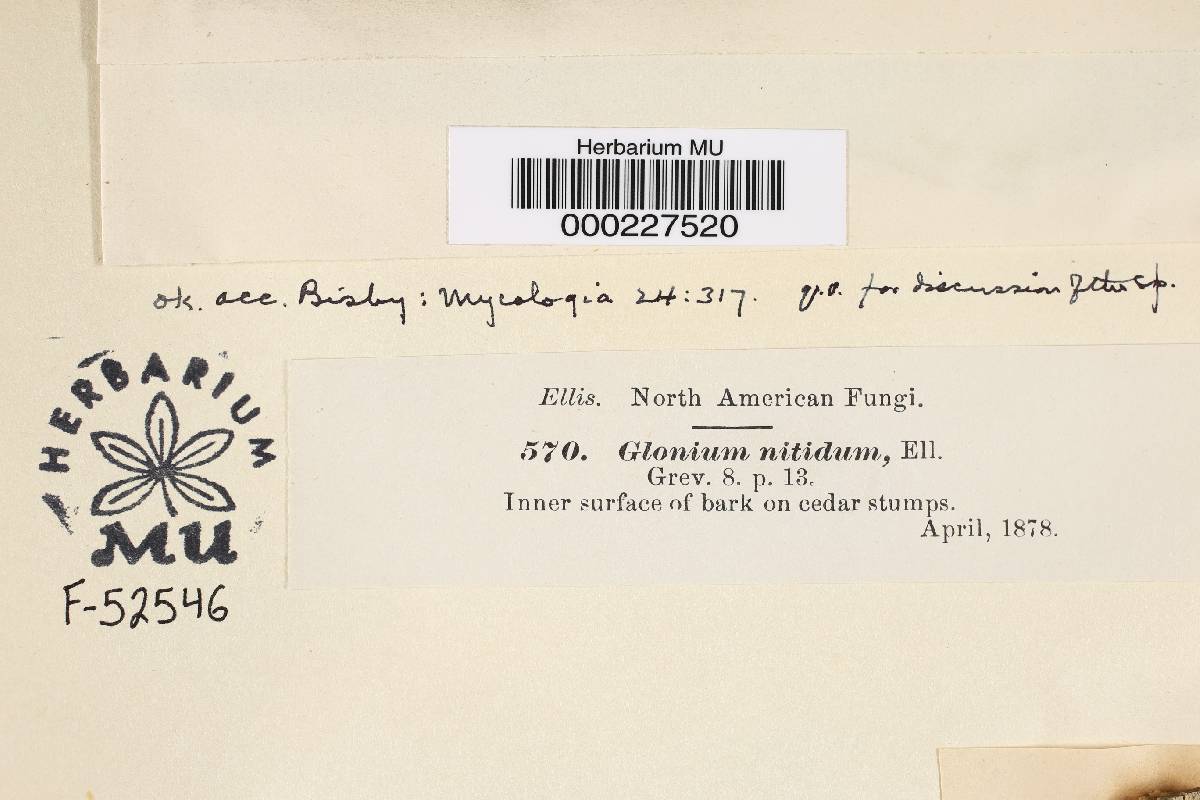 Herbarium MU
000227520
ok. acc. Bisby: Mycologia 24:317. q.v. for discussion of the sp.
HERBARIUM
MU
F-52546
Ellis. North American Fungi.
570. Glonium nitidum, Ell.
Grev. 8. p. 13.
Inner surface of bark on cedar stumps.
April, 1878.